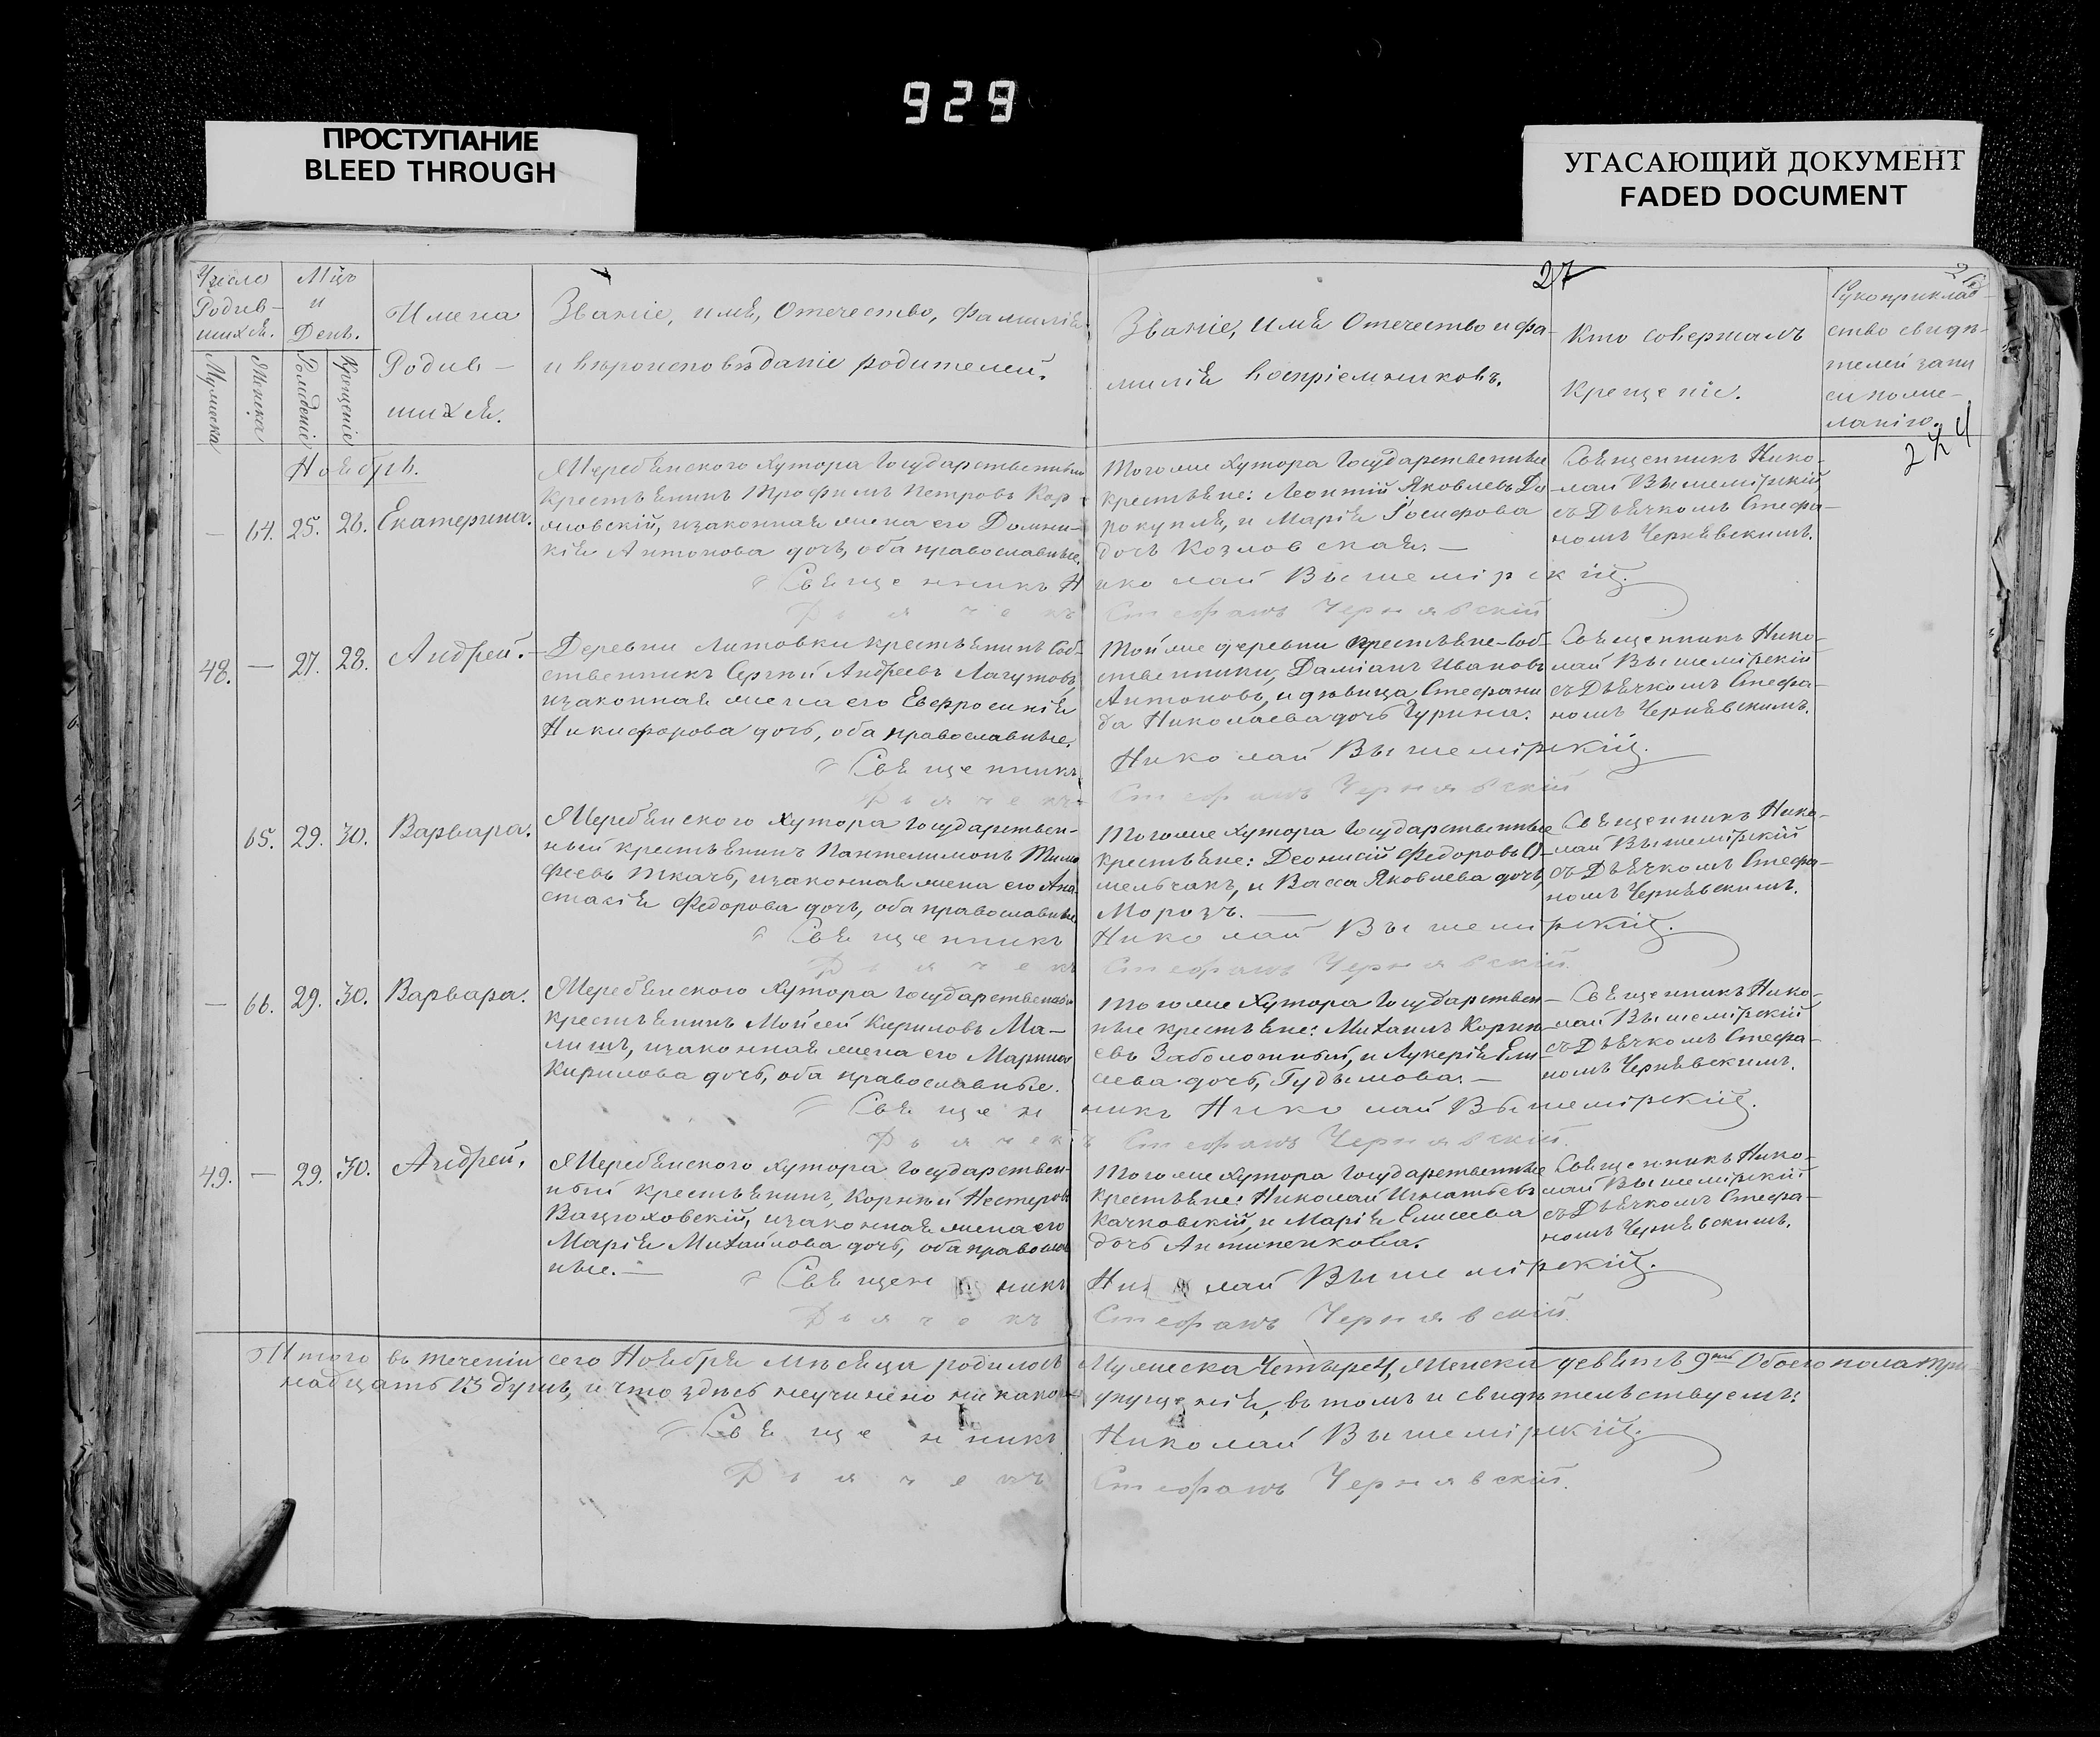 929
ПРОСТУПАНИЕ
BLEED THROUGH
УГАСАЮЩИЙ ДОКУМЕНТ
FADED DOCUMENT
27
274
Число
Родив-
шихся.
Мужеска
Женска
Мцъ
и
День.
Рожденіе
Крещеніе
Имена
Родив-
шихся.
Званіе, имя, Отечество, фамилія
и вѣроисповѣданіе родителей.
Званіе, Имя Отечество и фа-
милія воспріемниковъ.
Кто совершалъ
Крещеніе.
Рукоприклад-
ство свидѣ-
телей запи
си по же-
ланію.
Ноябрь.
— 64. 25. 26. Екатерина.
Жеребянского Хутора Государственный
Крестьянинъ Трофимъ Петровъ Кар-
ловскій, и законная жена его Домни-
кія Антонова дочь, оба православные.
Тогоже Хутора Государственные
крестьяне: Леонтій Яковлевъ До-
рокупля, и Марія Іосифова
дочь Козловская. —
Священникъ Нико-
лай Вышемірскій
съ Дьячкомъ Стефа-
номъ Чернявскимъ.
Священникъ Николай Вышемірскій.
Дьячекъ Стефанъ Чернявскій
48. — 27. 28. Андрей. —
Деревни Литовки крестьянинъ Соб-
ственникъ Сергѣй Андреевъ Лагутовъ,
и законная жена его Евфросинія
Никифорова дочь, оба православные.
Тойже деревни крестьяне-Соб-
ственники, Даміанъ Ивановъ
Антоновъ, и дѣвица Стефани
да Николаева дочь Гурина.
Священникъ Нико-
лай Вышемірскій
съ Дьячкомъ Стефа-
номъ Чернявскимъ.
Священникъ Николай Вышемірскій.
Дьячекъ Стефанъ Чернявскій
65. 29. 30. Варвара.
Жеребянского Хутора Государствен-
ный крестьянинъ Пантелимонъ Тимо
феевъ Ткачъ, и законная жена его Ана
стасія Федорова дочь, оба православные
Тогоже Хутора Государственные
крестьяне: Деонисій Федоровъ О-
мельчакъ, и Васса Яковлева дочь,
Морозъ. —
Священникъ Нико-
лай Вышемірскій
съ Дьячкомъ Стефа-
номъ Чернявскимъ.
Священникъ Николай Вышемірскій.
Дьячекъ Стефанъ Чернявскій.
— 66. 29. 30. Варвара.
Жеребянского Хутора Государственный
крестьянинъ Мойсей Кириловъ Ма-
лишъ, и законная жена его Марина
Кирилова дочь, оба православные.
Тогоже Хутора Государствен-
ные крестьяне: Михаилъ Корни
евъ Заболотный, и Лукерія Ели-
сеева дочь, Гудымова. —
Священникъ Нико-
лай Вышемірскій
съ Дьячкомъ Стефа-
номъ Чернявскимъ.
Священникъ Николай Вышемірскій.
Дьячекъ Стефанъ Чернявскій.
49. — 29. 30. Андрей.
Жеребянского Хутора Государствен-
ный крестьянинъ, Корнѣй Нестеровъ
Вацюховскій, и законная жена его
Марія Михайлова дочь, оба православ
ные. —
Тогоже Хутора Государственные
Крестьяне: Николай Игнатьевъ
Качковскій, и Марія Елисеева
дочь Антипенкова.
Священникъ Нико-
лай Вышемірскій
съ Дьячкомъ Стефа-
номъ Чернявскимъ.
Священникъ Николай Вышемірскій.
Дьячокъ Стефанъ Чернявскій.
Итого въ теченіи сего Ноября мѣсяца родилось Мужеска Четыре 4, Женска девять 9ть Обоего пола три
надцать 13 душъ, и что здѣсь неучинено никакого упущенія, въ томъ и свидѣтельствуемъ:
Священникъ Николай Вышемірскій.
Дьячекъ Стефанъ Чернявскій.